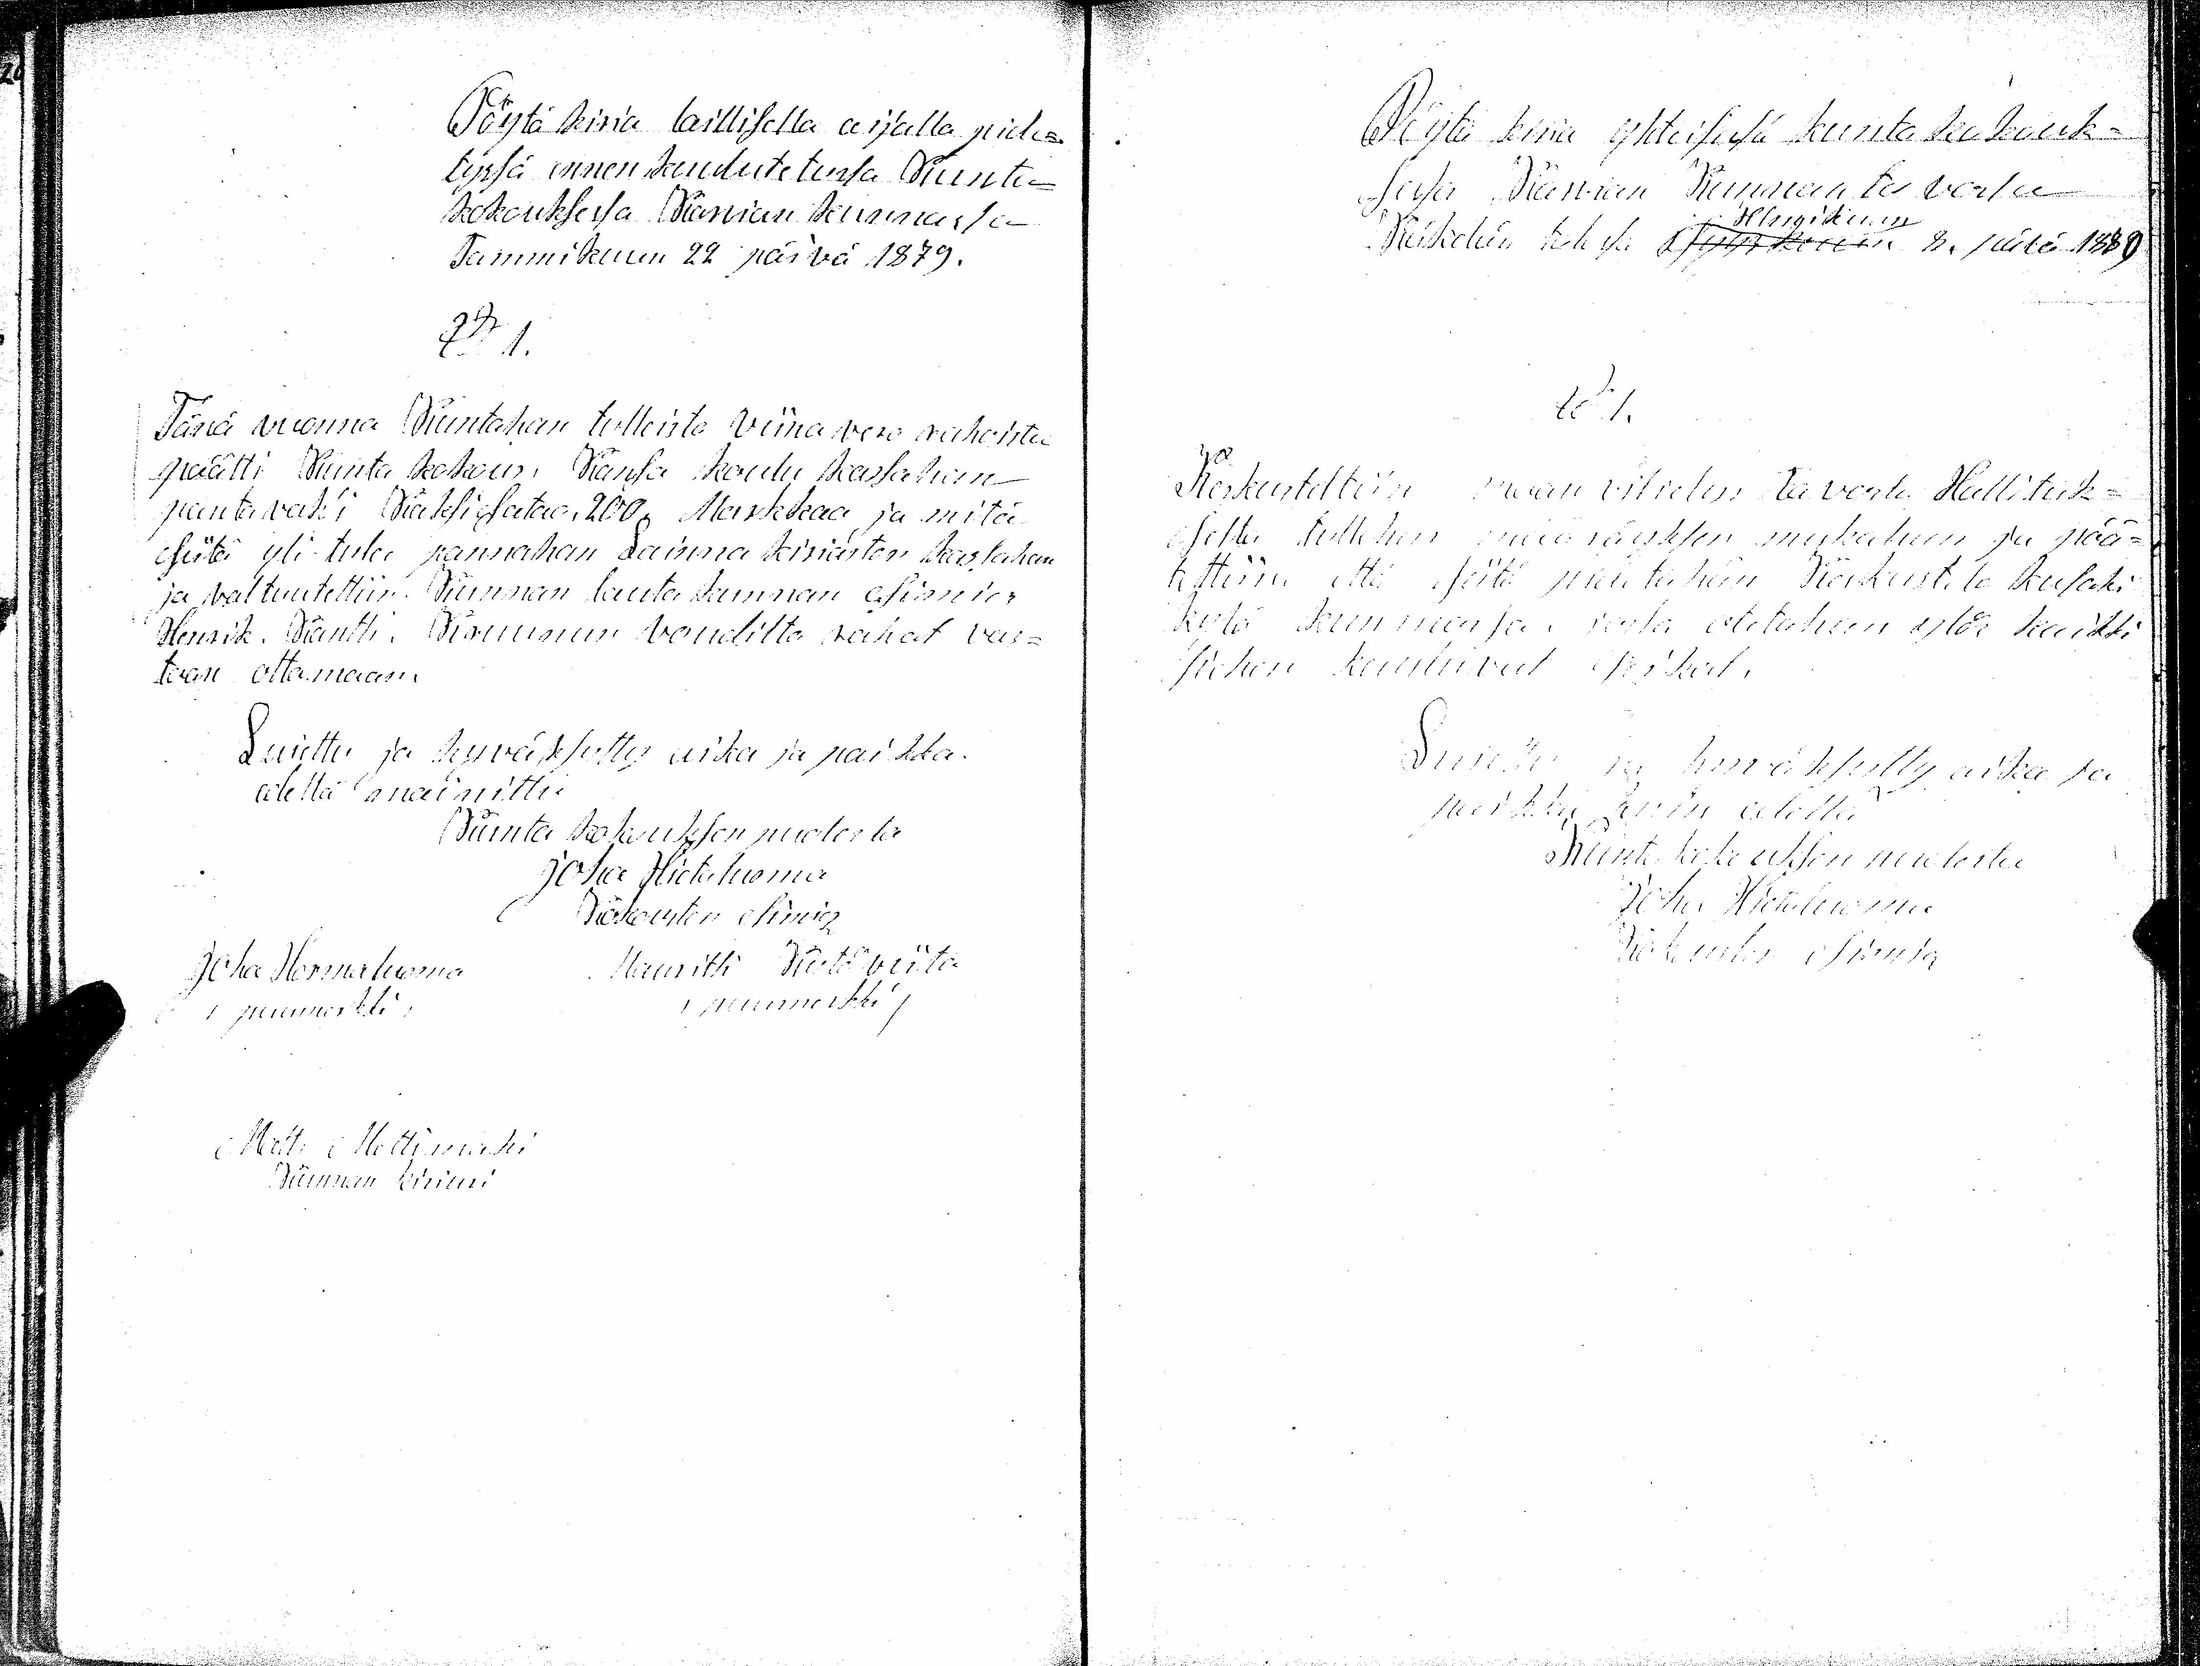 Pöytä kiria laillisella aijalla pide=
tyssä ennen kuulutetussa Kunta-
kokouksessa Karvian kunnassa
Tammikuun 22 päivä 1879.
1.
Tänä vuonna Kuntahan tulleista viina vero rahoista
päätti Kunta kokous, Kansa koulu kassahan
pantavaksi Kaksisataa, 200, Markkaa ja mitä
siitä yli tulee pannahan Lainna kiriaston kassahan
ja valtuutettiin Kunnan lautakunnan esimies
Henrik. Kantti. Kruunun voudilta rahat vas=
taan ottamaan.
Luettu ja hyväksytty aika ja paikka
edellä mainittu
Kunta kokouksen puolesta
Joha Hietaluoma
Kokousten esimies
Joha Hormaluoma
puumerkki
Mauritti Kustaviita
puumerkki
Matti Mattimäki
Kunnan kiriuri
Pöytä kiria yhteisesä kunta kokouk=
sesa Karvian Kunnan tuvasta
Helmikuun
8. päivä 1879
1.
Keskusteltiin maan viljelys tavasta Hallituk=
selta tullehen määräyksen mukahan ja pää=
tettiin että siitä pidetähän Keskustelo kusaki
kylä kunnassa, josta otetahan ylös kaikki
siihen kuuluvat seikat.
Luettu ja hyväksytty aika ja
paikka kuin edellä
Kunta kokouksen puolesta
Joha Hietaluoma
Kokousten esimies